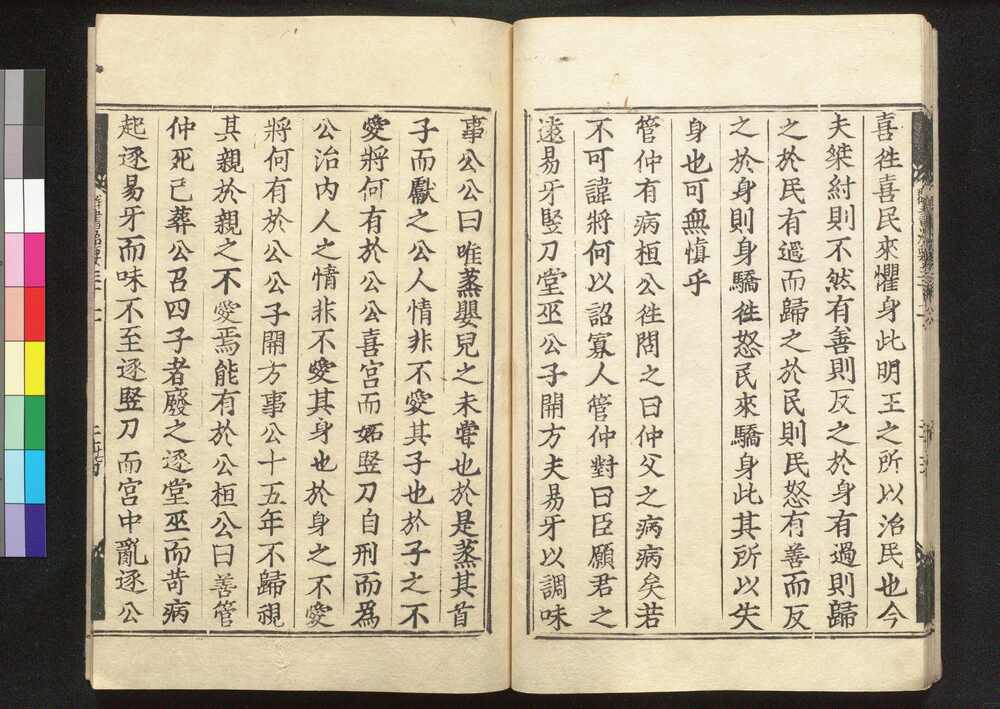 喜徃喜民來懼身此明王之所以治民也今
夫桀紂則不然有善則反之於身有過則歸
之於民有過而歸之於民則民怒有善而反
之於身則身驕徃怒民來驕身此其所以失
身也可無慎乎
管仲有病桓公徃問之曰仲父之病病矣若
不可諱將何以詔寡人管仲對曰臣願君之
遠易牙竪刀堂巫公子開方夫易牙以調味
事公公曰唯蒸嬰兒之未嘗也於是蒸其首
子而獻之公人情非不愛其子也於子之不
愛將何有於公公喜宮而妬竪刀自刑而爲
公治內人之情非不愛其身也於身之不愛
將何有於公公子開方事公十五年不歸視
其親於親之不愛焉能有於公桓公曰善管
仲死已葬公召四子者廢之逐堂巫而苛病
起逐易牙而味不至逐竪刀而宮中亂逐公